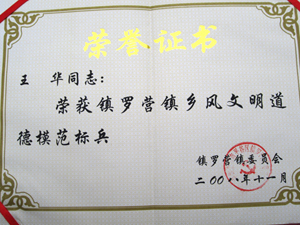 荣誉证书
王 华同志：
荣获镇罗营镇乡风文明道
德模范标兵
镇罗营镇委员会
二〇〇八年十一月